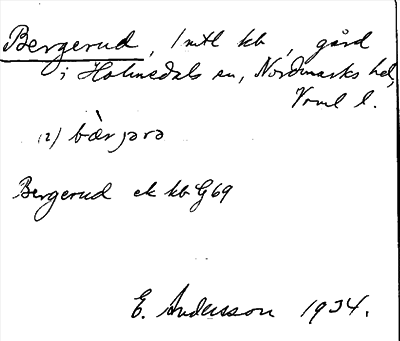 Bergerud, 1 mtl kb, gård
i Holmedals sn, Nordmarks hd,
Vrml l.
(2) bær̀ jərə
Bergerud ek kb G69
E. Andersson 1934.